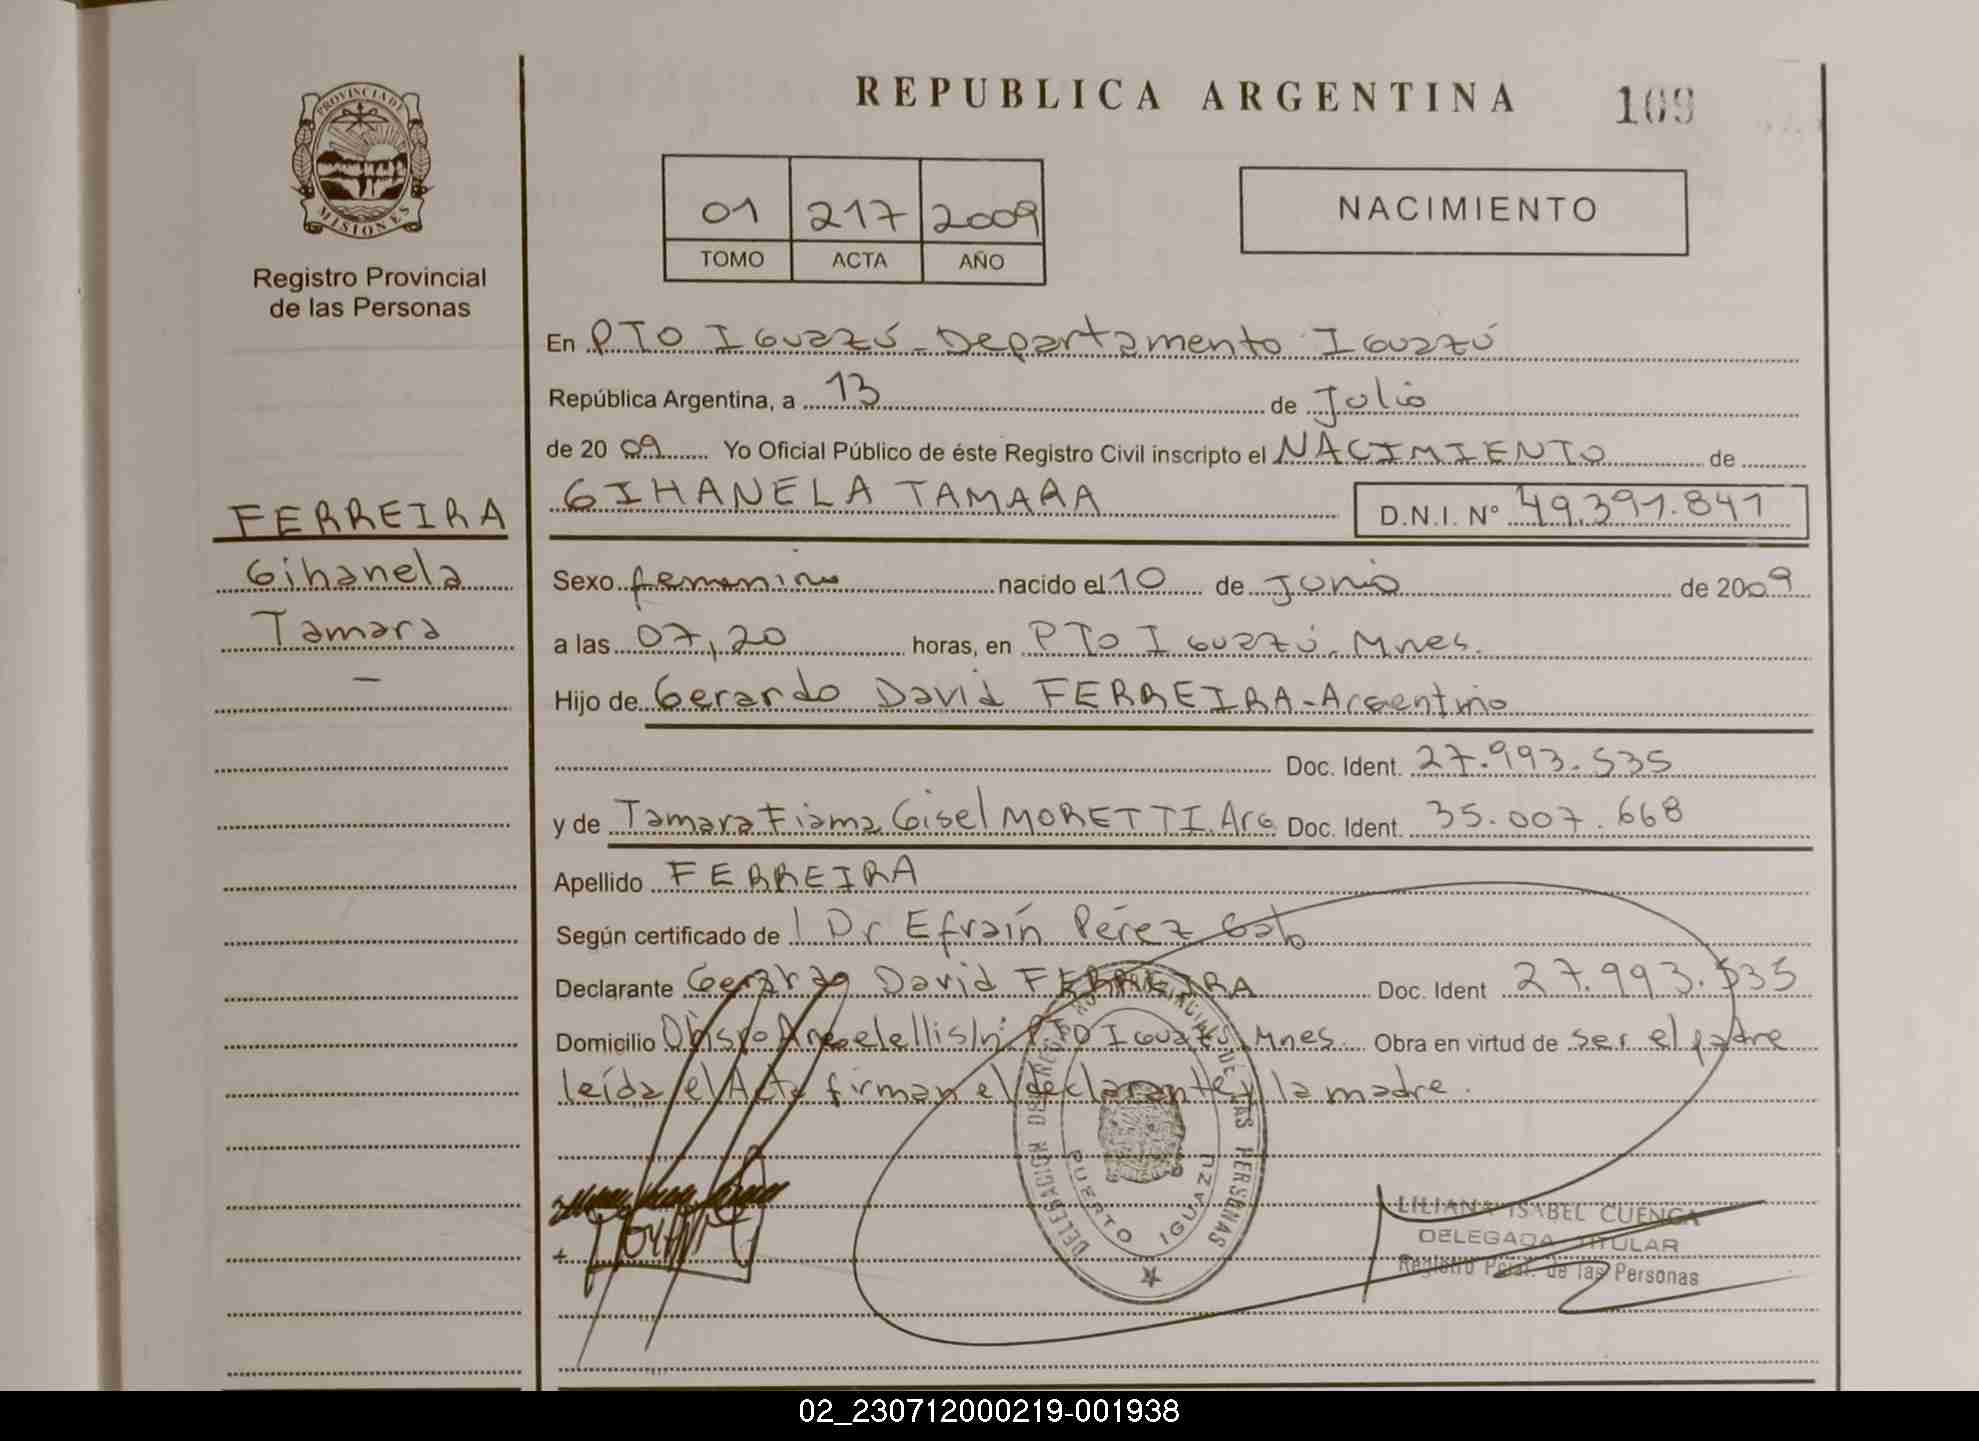 REPUBLICA ARGENTINA
109
PROVINCIA DE MISIONES
Registro Provincial
de las Personas
01 217 2009
TOMO ACTA AÑO
NACIMIENTO
En PTO IGUAZÚ - Departamento IGUAZÚ
República Argentina, a 13 de Julio
de 2009 Yo Oficial Público de éste Registro Civil inscripto el NACIMIENTO de
GIHANELA TAMARA D.N.I. N° 49.391.841
FERREIRA
Gihanela
Tamara
Sexo femenino nacido el 10 de Junio de 2009
a las 07,20 horas, en PTO IGUAZÚ. Mnes.
Hijo de Gerardo David FERREIRA - Argentino
Doc. Ident. 27.993.535
y de Tamara Fiama Gisel MORETTI. Arg Doc. Ident. 35.007.668
Apellido FERREIRA
Según certificado de Dr Efraín Pérez Gato
Declarante Gerardo David FERREIRA Doc. Ident 27.993.535
Domicilio Obispo s/n: PTO IGUAZÚ Mnes. Obra en virtud de ser el padre
leída el Acta firman el declarante y la madre.
DELEGACION DEL REGISTRO PROVINCIAL DE LAS PERSONAS
PUERTO IGUAZU
LILIANA ISABEL CUENCA
DELEGADA TITULAR
Registro Pcial. de las Personas
02_230712000219-001938